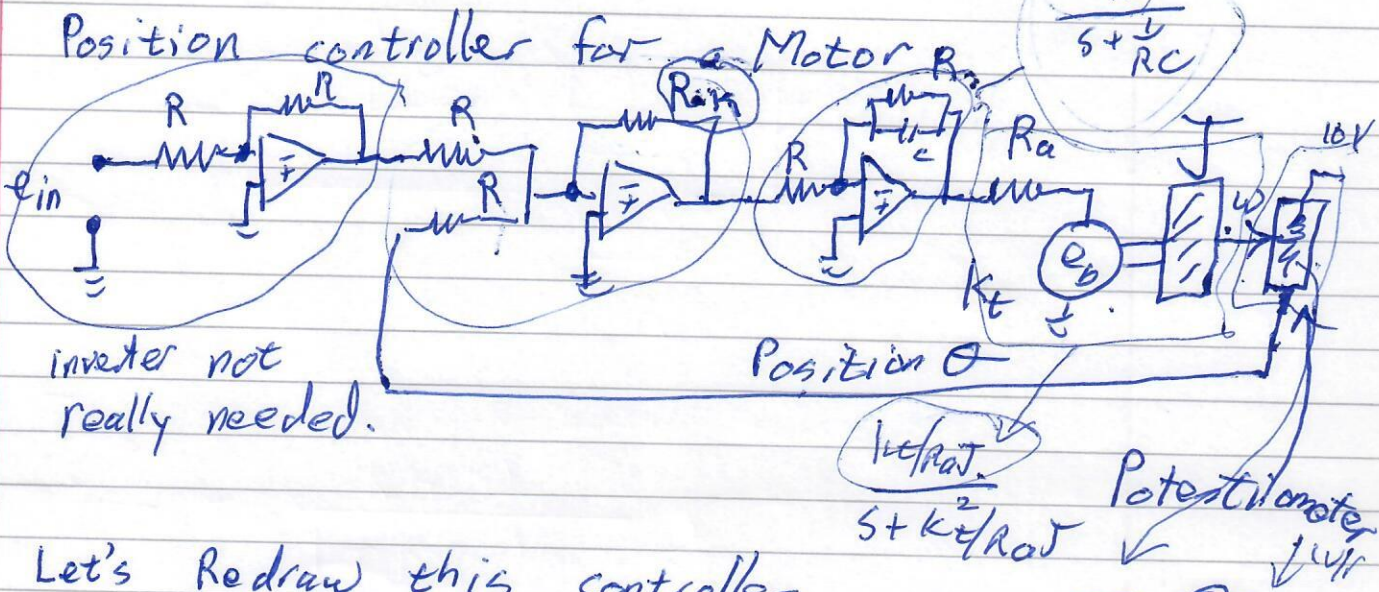 s + 1/RC
Position controller for a Motor
R R R R R Rₐ J 10V
e_in R C ω
e_b
K_t
inverter not
really needed.
Position θ
Kt/RaJ
s + Kt²/RaJ
Potentiometer
Let's Redraw this controller